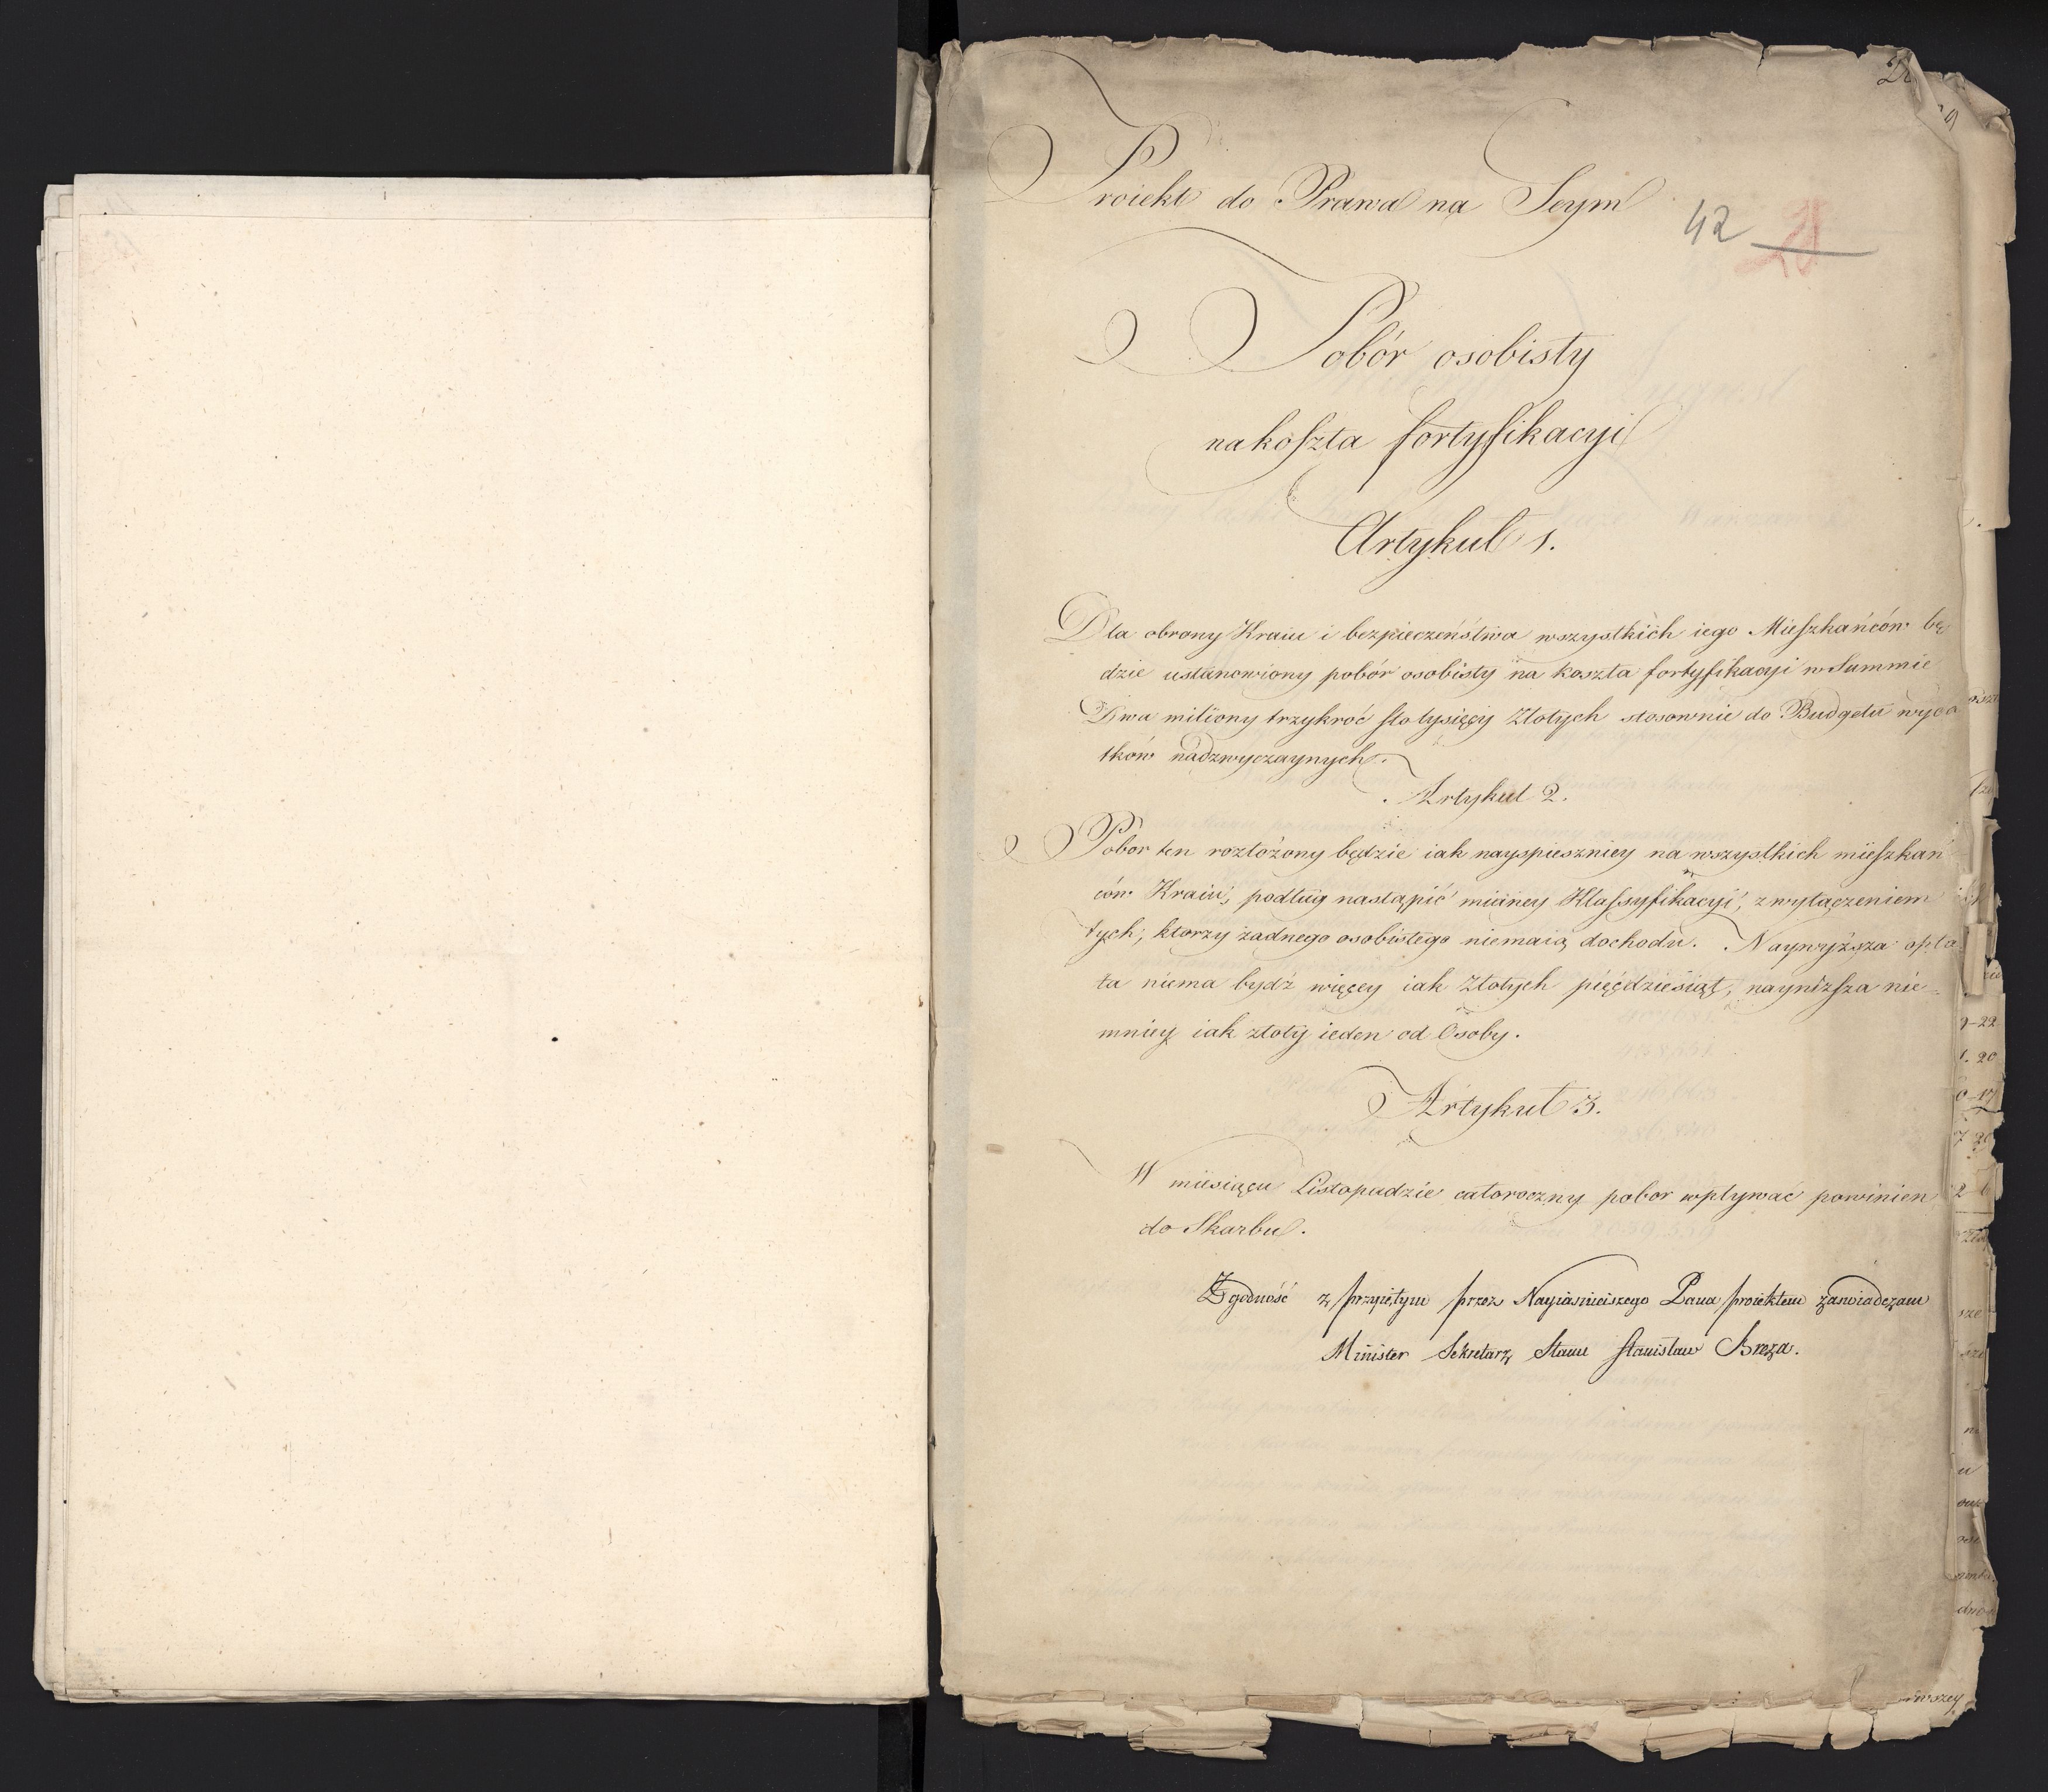 Proiekt do Prawa na Seym
42
Pobór osobisty
na koszta fortyfikacyi
Artykuł 1.
Dla obrony Kraiu i bezpieczeństwa wszystkich iego Mieszkańców bę
dzie ustanowiony pobór osobisty na koszta fortyfikacyi w Summie
Dwa miliony trzykroć stotysięcy Złotych stosownie do Budgetu wyda
tków nadzwyczaynych.
Artykuł 2.
Pobor ten rozłożony będzie iak nayspieszniey na wszystkich mieszkań
ców Kraiu, podług nastąpić mianey Klassyfikacyi, z wyłączeniem
tych, ktorzy żadnego osobistego niemaią dochodu. Naywyższa opła
ta niema bydź więcey iak Złotych pięćdziesiąt, nayniższa nie=
mniey iak złoty ieden od Osoby.
Artykuł 3.
W miesiącu Listopadzie całoroczny pobor wpływać powinien
do Skarbu.
Zgodność z przyiętym przez Nayiaśnieiszego Pana proiektem zaswiadczam
Minister Sekretarz Stanu Stanisław Breza.